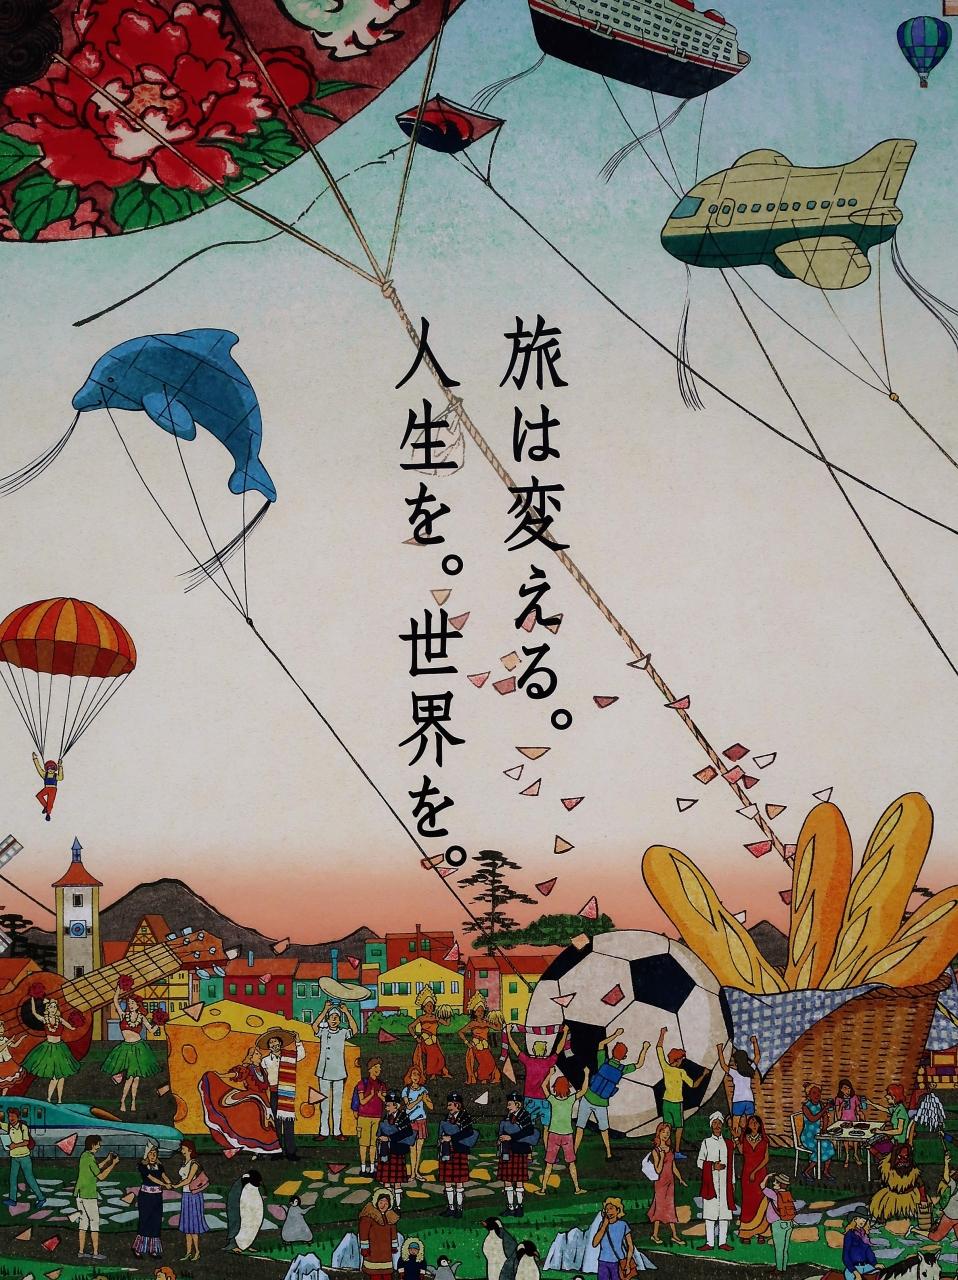 旅は変える。
人生を。世界を。